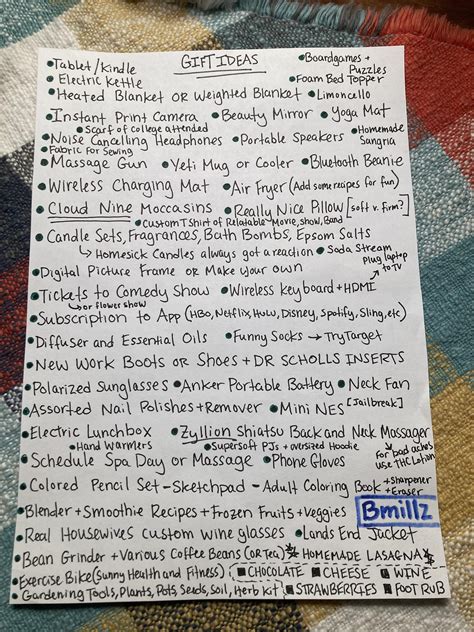 GIFT IDEAS
•Tablet/Kindle •Boardgames + Puzzles
•Electric Kettle •Foam Bed Topper
•Heated Blanket OR Weighted Blanket •Limoncello
•Instant Print Camera •Beauty Mirror •Yoga Mat
•Scarf of college attended
•Noise Cancelling Headphones •Portable Speakers •Homemade Sangria
•Fabric For Sewing
•Massage Gun •Yeti Mug or Cooler •Bluetooth Beanie
•Wireless Charging Mat •Air Fryer (Add some recipes for fun)
•Cloud Nine Moccasins •Really Nice Pillow [soft v. firm?]
•Custom T Shirt of Relatable Movie, show, Band
•Candle Sets, Fragrances, Bath Bombs, Epsom Salts
↳ Homesick Candles always got a reaction •Soda Stream
•Digital Picture Frame or Make your own
Plug laptop → to TV
•Tickets to Comedy Show •Wireless Keyboard + HDMI
↳ or flower show
•Subscription to App (HBO, Netflix, Hulu, Disney, Spotify, Sling, etc)
•Diffuser and Essential Oils •Funny Socks → Try Target
•New Work Boots or Shoes + DR SCHOLLS INSERTS
•Polarized Sunglasses •Anker Portable Battery •Neck Fan
•Assorted Nail Polishes + Remover •Mini NES [Jailbreak]
•Electric Lunchbox •Zyllion Shiatsu Back and Neck Massager
•Hand Warmers •Supersoft PJs + oversized Hoodie
For bad aches use THC Lotion
•Schedule Spa Day or Massage •Phone Gloves
•Colored Pencil Set - Sketchpad - Adult Coloring Book + Sharpener + Eraser
•Blender + Smoothie Recipes + Frozen Fruits + Veggies
Bmillz
•Real Housewives custom wine glasses •Lands End Jacket
•Bean Grinder + Various Coffee Beans (OR Tea) HOMEMADE LASAGNA
•Exercise Bike (Sunny Health and Fitness) ■ CHOCOLATE ■ CHEESE ■ WINE
•Gardening Tools, Plants, Pots, Seeds, Soil, Herb Kit ■ STRAWBERRIES ■ FOOT RUB